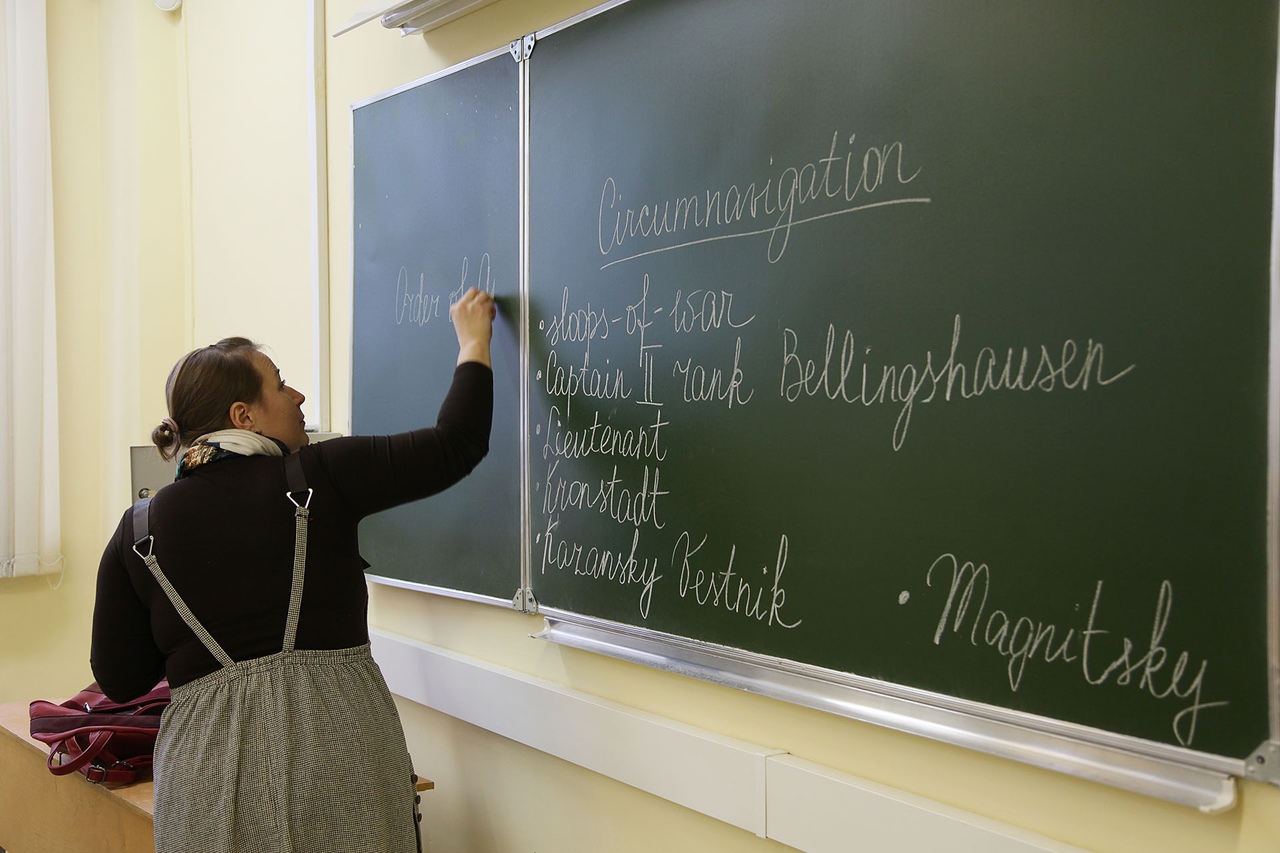 Order of
Circumnavigation
• sloops-of-war
• Captain II rank Bellingshausen
• Lieutenant
• Kronstadt
• Kazansky Vestnik
• Magnitsky